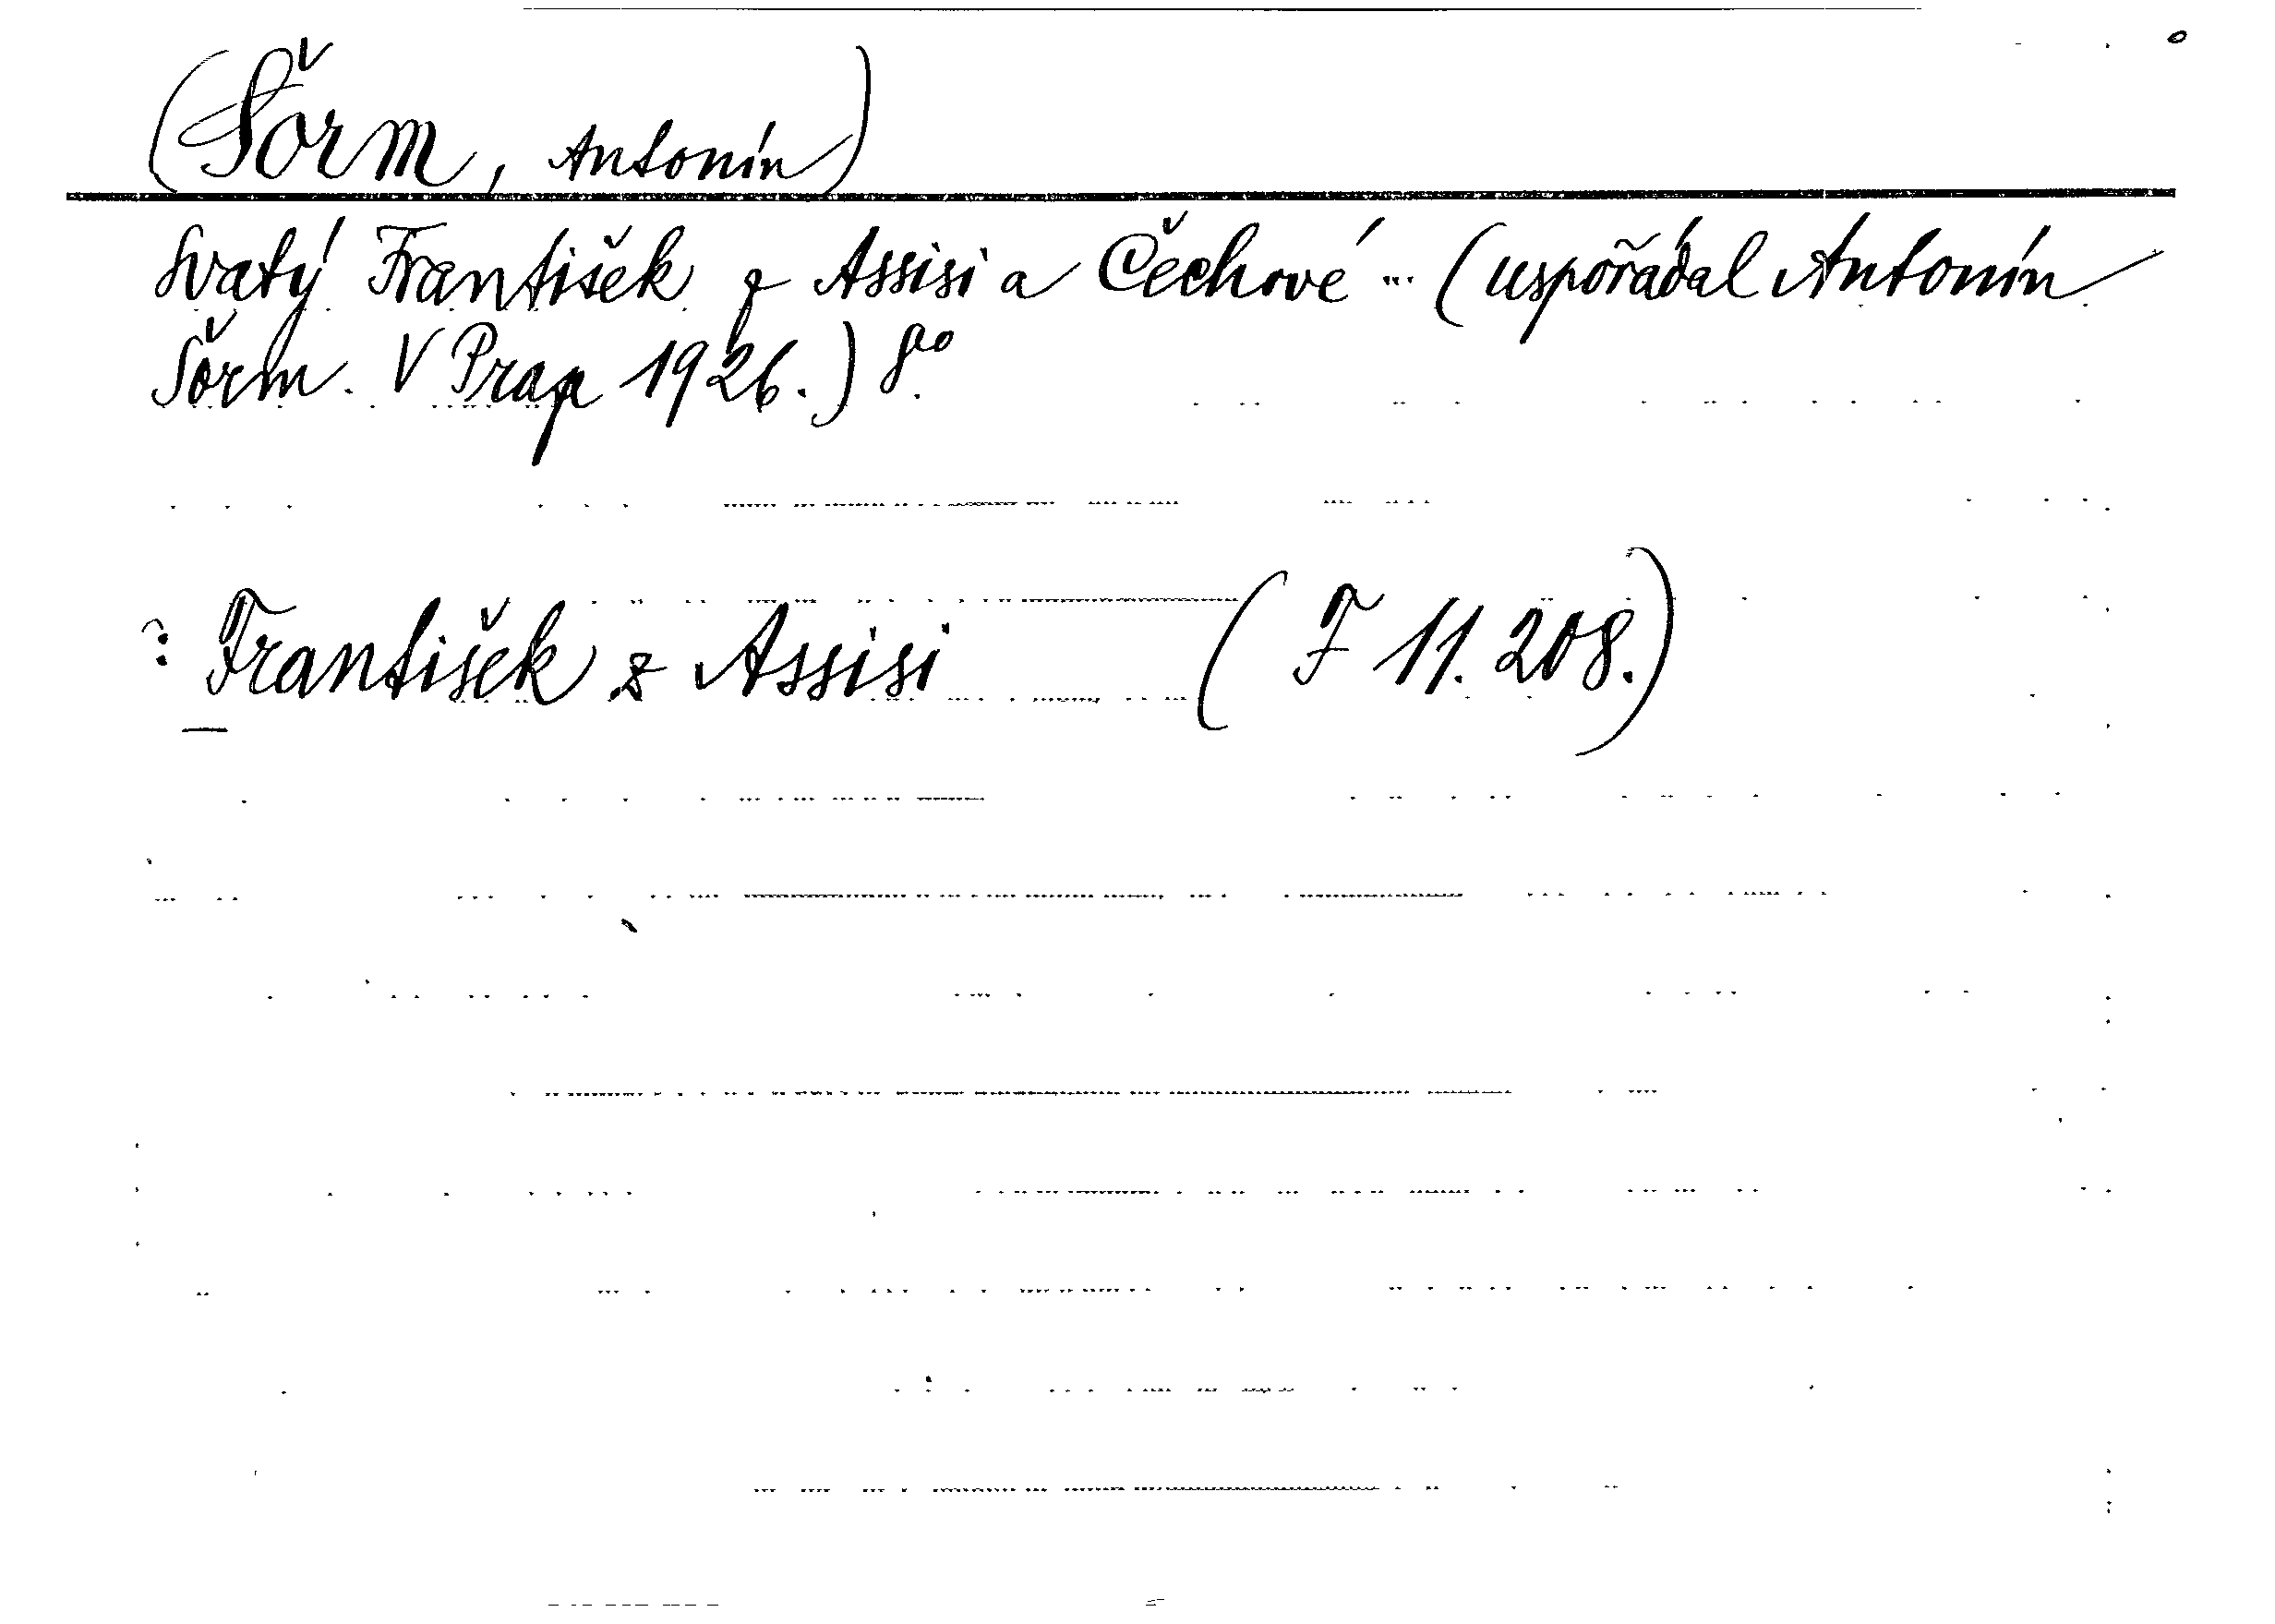 (Šorm, Antonín)
Svatý František z Assisi a Čechové ... (uspořádal Antonín
Šorm. V Praze 1926.) 8°
: František z Assisi (F 11.208.)